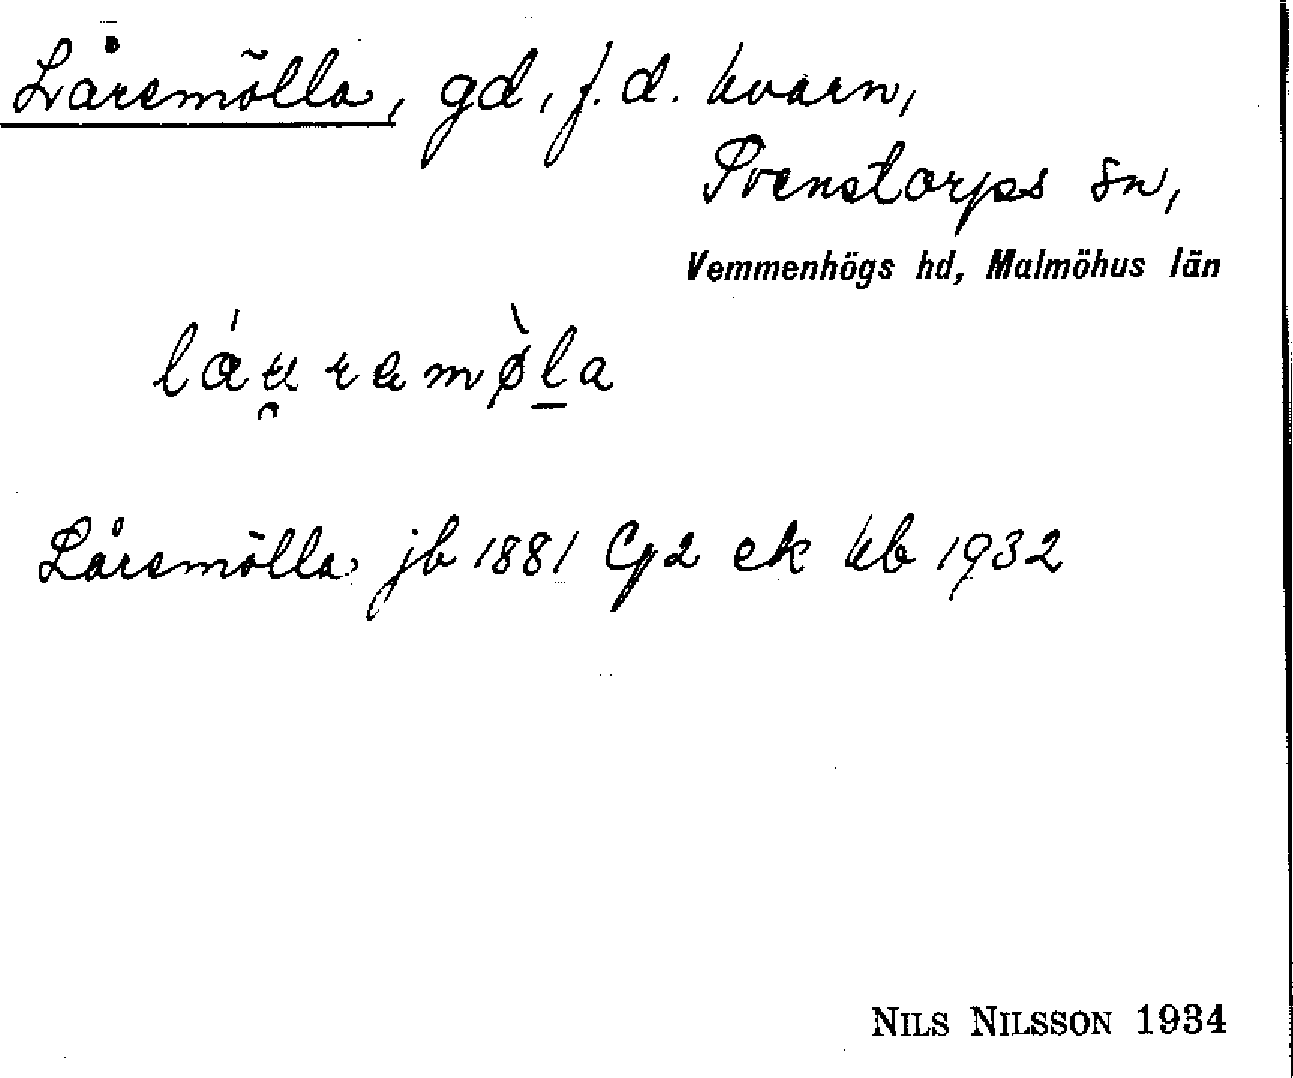 Låremölla, gd, f.d. kvarn,
Svenstorps sn,
Vemmenhögs hd, Malmöhus län
Låremölla jb 1881 Cg2 ek kb 1932
NILS NILSSON 1934